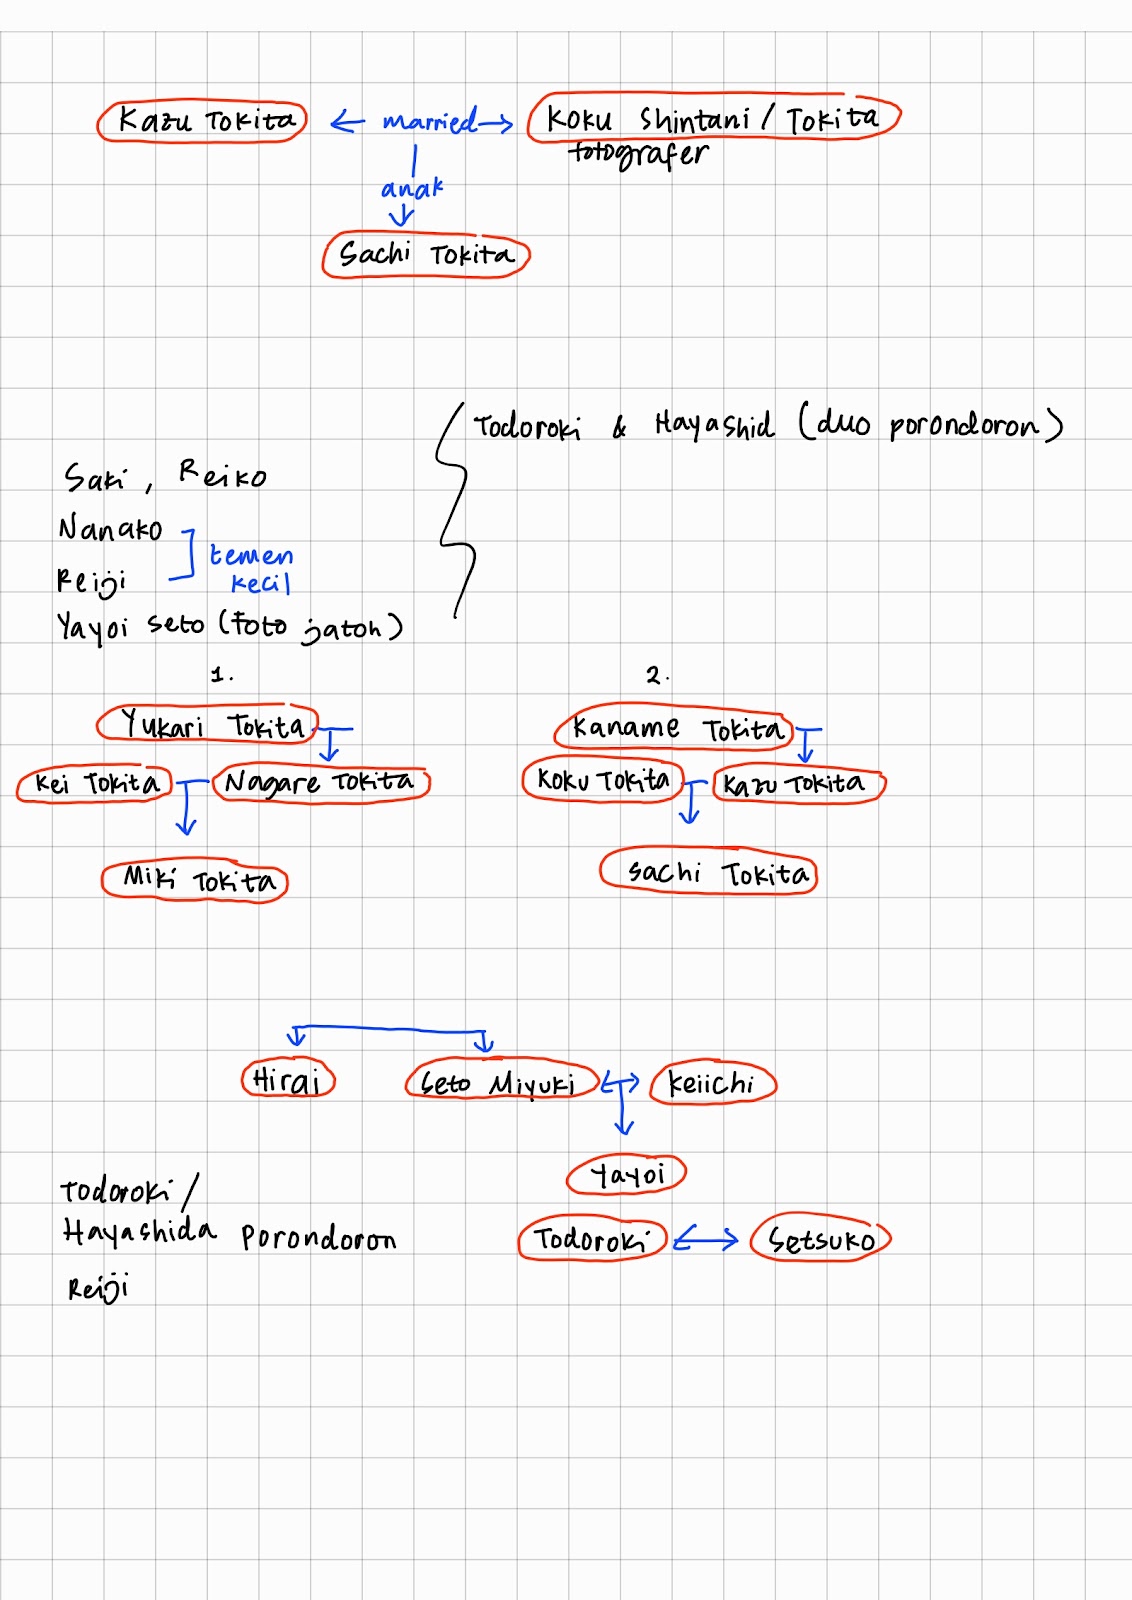 Kazu Tokita married Koku Shintani / Tokita
fotografer
anak
Sachi Tokita
Todoroki & Hayashid (duo porondoron)
Saki, Reiko
Nanako
temen
kecil
Reiji
Yayoi Seto (foto jatoh)
1. 2.
Yukari Tokita Kaname Tokita
Kei Tokita Nagare Tokita Koku Tokita Kazu Tokita
Miki Tokita Sachi Tokita
Hirai Seto Miyuki Keiichi
Yayoi
Todoroki /
Hayashida Porondoron Todoroki Setsuko
Reiji